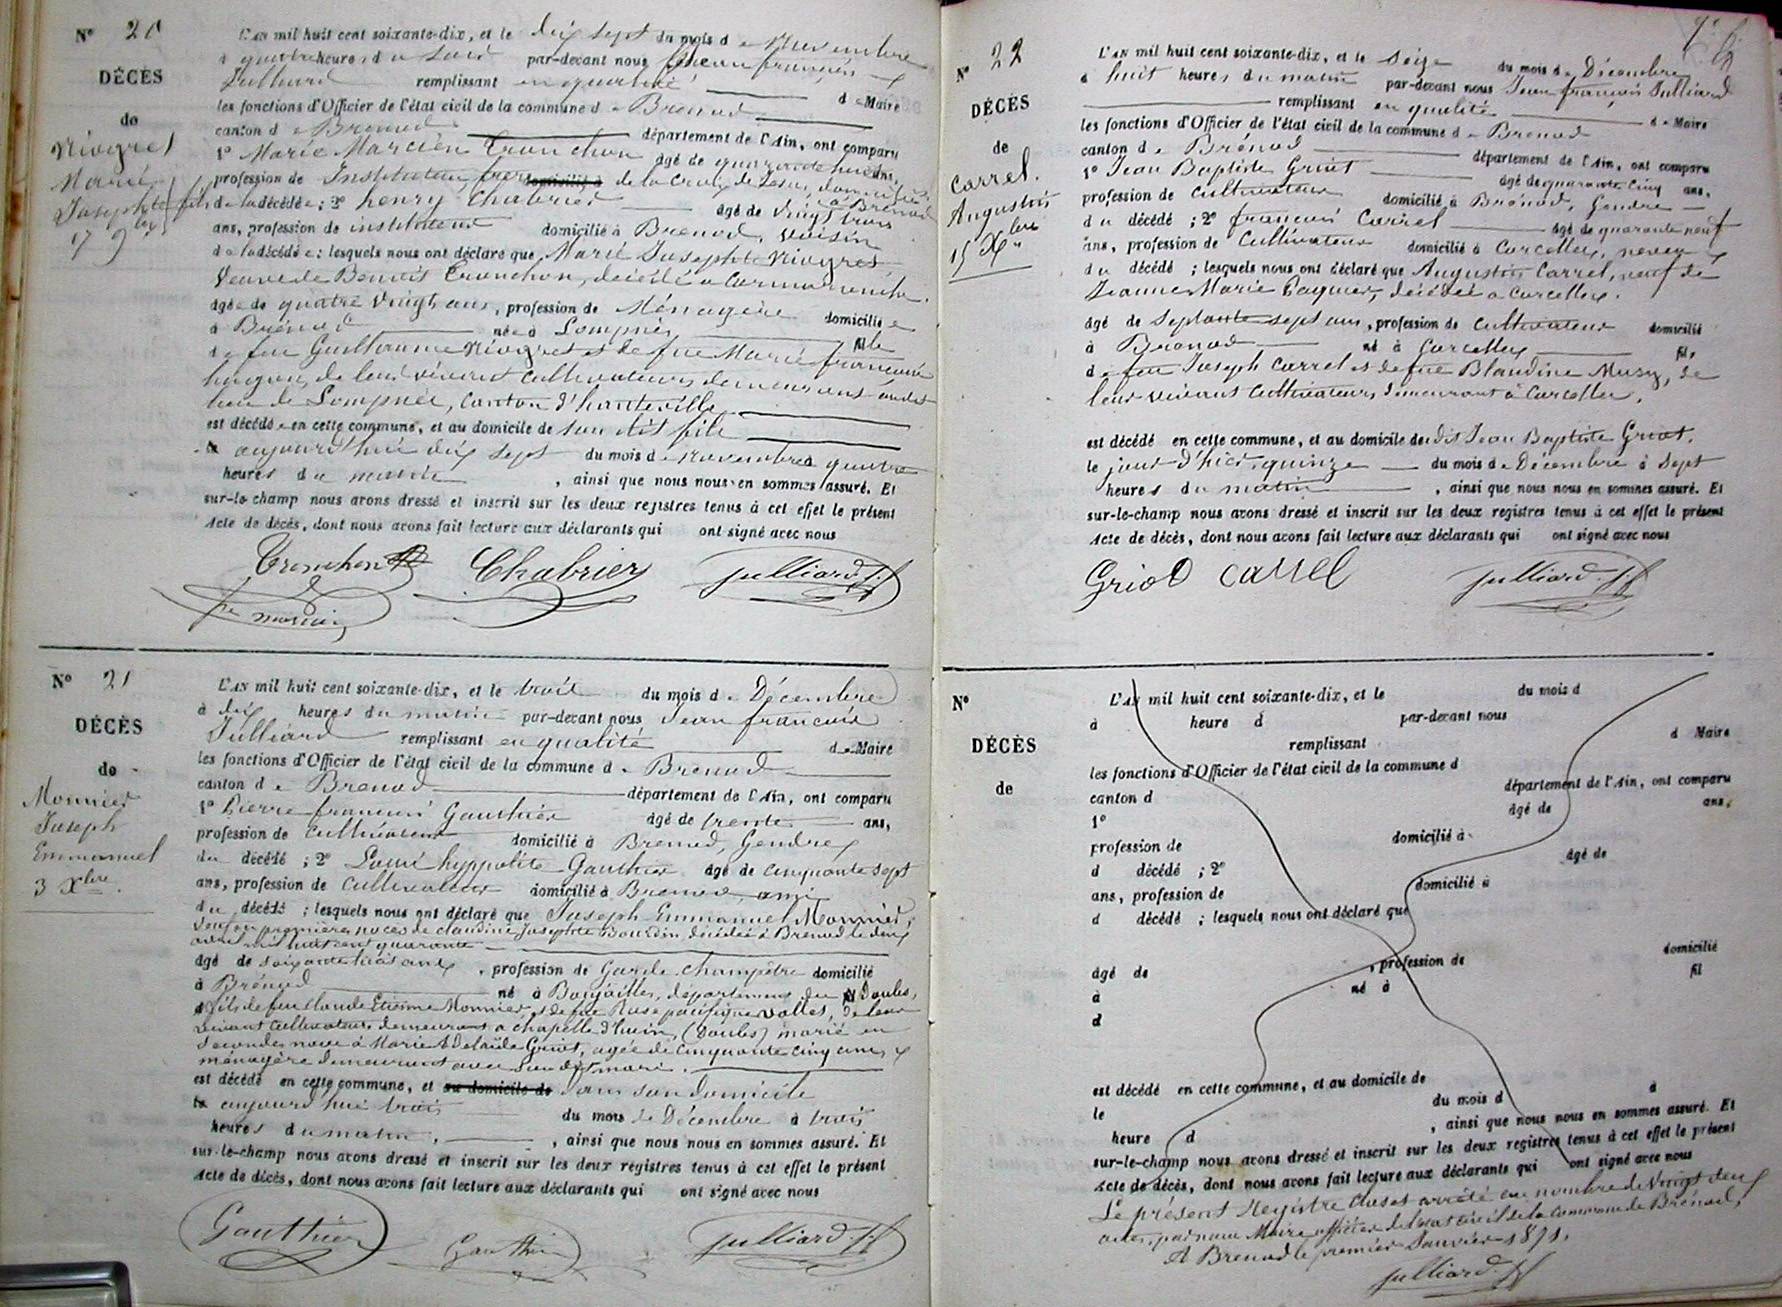 N° 20
DÉCÈS
de
Niogret
Marie
Josephte
17 9bre
L'AN mil huit cent soixante-dix, et le dix sept du mois de Novembre
à quatre heures du soir par-devant nous Jean françois
Julliard remplissant en qualité de Maire
les fonctions d'Officier de l'état civil de la commune de Brenod
canton de Brenod département de l'Ain, ont comparu
1° Marie Marcien Tronchon âgé de quarante huit ans,
profession de Instituteur, frère domicilié à de la Croix de Jesus, domicilié à Brénod
fils de la décédée ; 2° henry Chabrier âgé de vingt trois
ans, profession de instituteur domicilié à Brenod, voisin
de la décédée : lesquels nous ont déclaré que Marie Josephte Niogret
Veuve de Benoit Tronchon, décédé a Cormaranche.
âgée de quatre vingts ans, profession de Ménagère domiciliée
à Brénod née à Lompnes fille
de feu Guillaume Niogret et de feue Marie françoise
de leur vivant cultivateurs demeurant audit
lieu de Lompnes, canton d'hauteville
est décédée en cette commune, et au domicile de son dit fils
le aujourd'hui dix sept du mois de Novembre à quatre
heures du matin, ainsi que nous nous en sommes assuré. Et
sur-le-champ nous avons dressé et inscrit sur les deux registres tenus à cet effet le présent
Acte de décès, dont nous avons fait lecture aux déclarants qui ont signé avec nous
Tronchon Chabrier Julliard
fre marcien
N° 21
DÉCÈS
de
Monnier
Joseph
Emmanuel
3 Xbre.
L'AN mil huit cent soixante-dix, et le trois du mois de Décembre
à dix heures du matin par-devant nous Jean françois
Julliard remplissant en qualité de Maire
les fonctions d'Officier de l'état civil de la commune de Brenod
canton de Brenod département de l'Ain, ont comparu
1° Pierre françois Gauthier âgé de trente ans,
profession de cultivateur domicilié à Brenod, Gendre
du décédé ; 2° Louis hyppolite Gauthier âgé de cinquante sept
ans, profession de cultivateur domicilié à Brenod, ami
du décédé ; lesquels nous ont déclaré que Joseph Emmanuel Monnier,
veuf en premières noces de claudine Josephte Bourdin décédée à Brenod le deux
avril mil huit cent quarante
âgé de soixante trois ans, profession de Garde champêtre domicilié
à Brénod né à Boujailles, département du Doubs,
fils de feu Claude Etienne Monnier et de feue Rose pacifique vallet, de leur
vivant cultivateurs demeurant à chapelle d'huin, (Doubs) marié en
secondes noces à Marie Adelaïde Griot, agée de cinquante cinq ans,
ménagère demeurant avec son dit mari.
est décédé en cette commune, et au domicile de dans son domicile
le aujourd'hui trois du mois de Décembre à trois
heures du matin, ainsi que nous nous en sommes assuré. Et
sur-le-champ nous avons dressé et inscrit sur les deux registres tenus à cet effet le présent
Acte de décès, dont nous avons fait lecture aux déclarants qui ont signé avec nous
Gauthier Gauthier Julliard
N° 22
DÉCÈS
de
Carrel.
Augustin
15 Xbre
L'AN mil huit cent soixante-dix, et le seize du mois de Décembre
à huit heures du matin par-devant nous Jean françois Julliard
remplissant en qualité de Maire
les fonctions d'Officier de l'état civil de la commune de Brénod
canton de Brénod département de l'Ain, ont comparu
1° Jean Baptiste Griot âgé de quarante cinq ans,
profession de cultivateur domicilié à Brénod, Gendre
du décédé ; 2° françois Carrel âgé de quarante neuf
ans, profession de Cultivateur domicilié à Corcelles, neveu
du décédé ; lesquels nous ont déclaré que Augustin Carrel, veuf de
Jeanne Marie Pagnier, décédée a Corcelles.
âgé de septante sept ans, profession de cultivateur domicilié
à Brénod né à Corcelles fils
de feu Joseph Carrel et de feue Blandine Musy, de
leur vivant cultivateurs demeurant à Corcelles.
est décédé en cette commune, et au domicile dudit Jean Baptiste Griot.
le jour d'hier, quinze du mois de Décembre à sept
heures du matin, ainsi que nous nous en sommes assuré. Et
sur-le-champ nous avons dressé et inscrit sur les deux registres tenus à cet effet le présent
Acte de décès, dont nous avons fait lecture aux déclarants qui ont signé avec nous
Griot carrel Julliard
N°
DÉCÈS
de
L'AN mil huit cent soixante-dix, et le du mois d
à heure d par-devant nous
remplissant d Maire
les fonctions d'Officier de l'état civil de la commune d
canton d département de l'Ain, ont comparu
1° âgé de ans,
profession de domicilié à
d décédé ; 2° âgé de
ans, profession de domicilié à
d décédé ; lesquels nous ont déclaré que
âgé de , profession de domicilié
à né à fil
d
est décédé en cette commune, et au domicile de
le du mois d à
heure d , ainsi que nous nous en sommes assuré. Et
sur-le-champ nous avons dressé et inscrit sur les deux registres tenus à cet effet le présent
Acte de décès, dont nous avons fait lecture aux déclarants qui ont signé avec nous
Le présent Registre clos et arrêté au nombre de Vingt deux
actes, par nous Maire officier de l'état civil de la commune de Brénod,
A Brenod le premier Janvier 1871.
Julliard